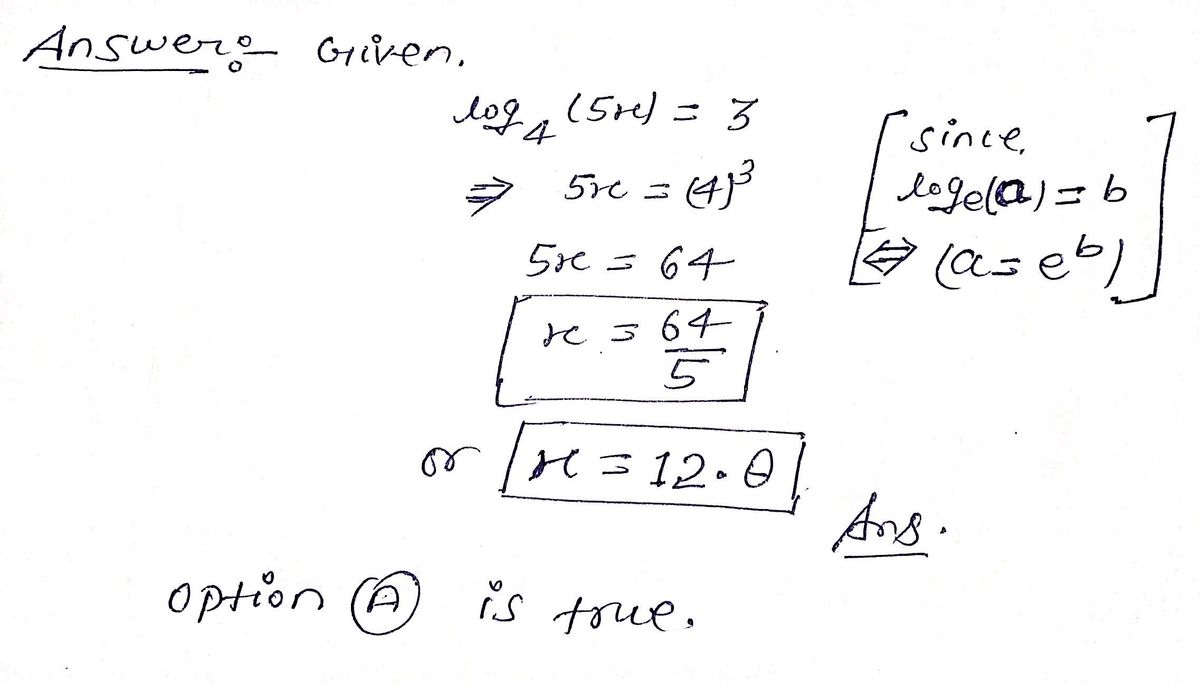 Answer:- Given.
log₄(5x) = 3
⇒ 5x = (4)³
5x = 64
x = 64/5
or x = 12.8
Ans.
[since,
logₑ(a) = b
⇔ (a = eᵇ)]
option (A) is true.